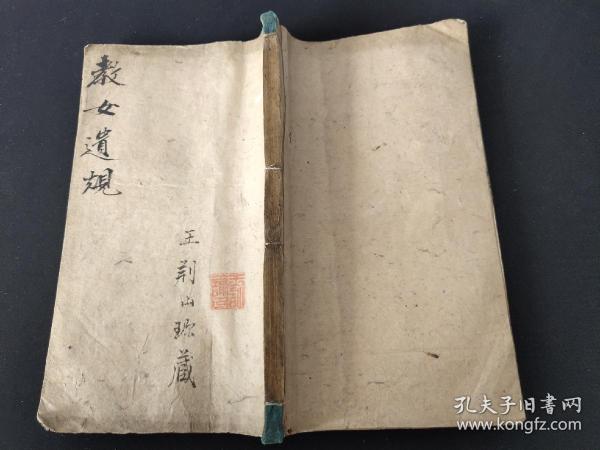 教女遺規
王荆山珎藏
孔夫子旧书网
www.kongfz.com